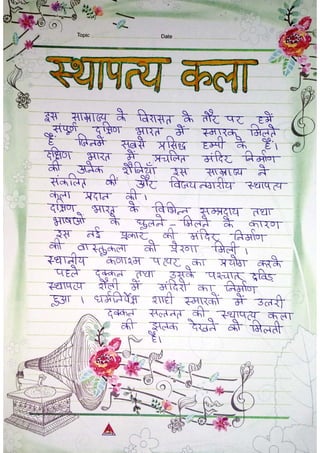 Topic Date
स्थापत्य कला
इस साम्राज्य के विरासत के तौर पर हमें
संपूर्ण दक्षिण भारत में स्मारक मिलते
हैं जिनमें सबसे प्रसिद्ध हम्पी के हैं।
दक्षिण भारत में प्रचलित मंदिर निर्माण
की अनेक शैलियाँ इस साम्राज्य ने
संकलित की और विजयनगरीय स्थापत्य
कला प्रदान की।
दक्षिण भारत के विभिन्न सम्प्रदाय तथा
भाषाओं के घुलने-मिलने के कारण
इस नई प्रकार की मंदिर निर्माण
की वास्तुकला को प्रेरणा मिली।
स्थानीय कणाश्म पत्थर का प्रयोग करके
पहले दक्कन तथा उसके पश्चात् द्रविड़
स्थापत्य शैली में मंदिरों का निर्माण
हुआ। धर्मनिर्पेक्ष शाही स्मारकों में उत्तरी
दक्कन सल्तनत की स्थापत्य कला
की झलक देखने को मिलती
है।